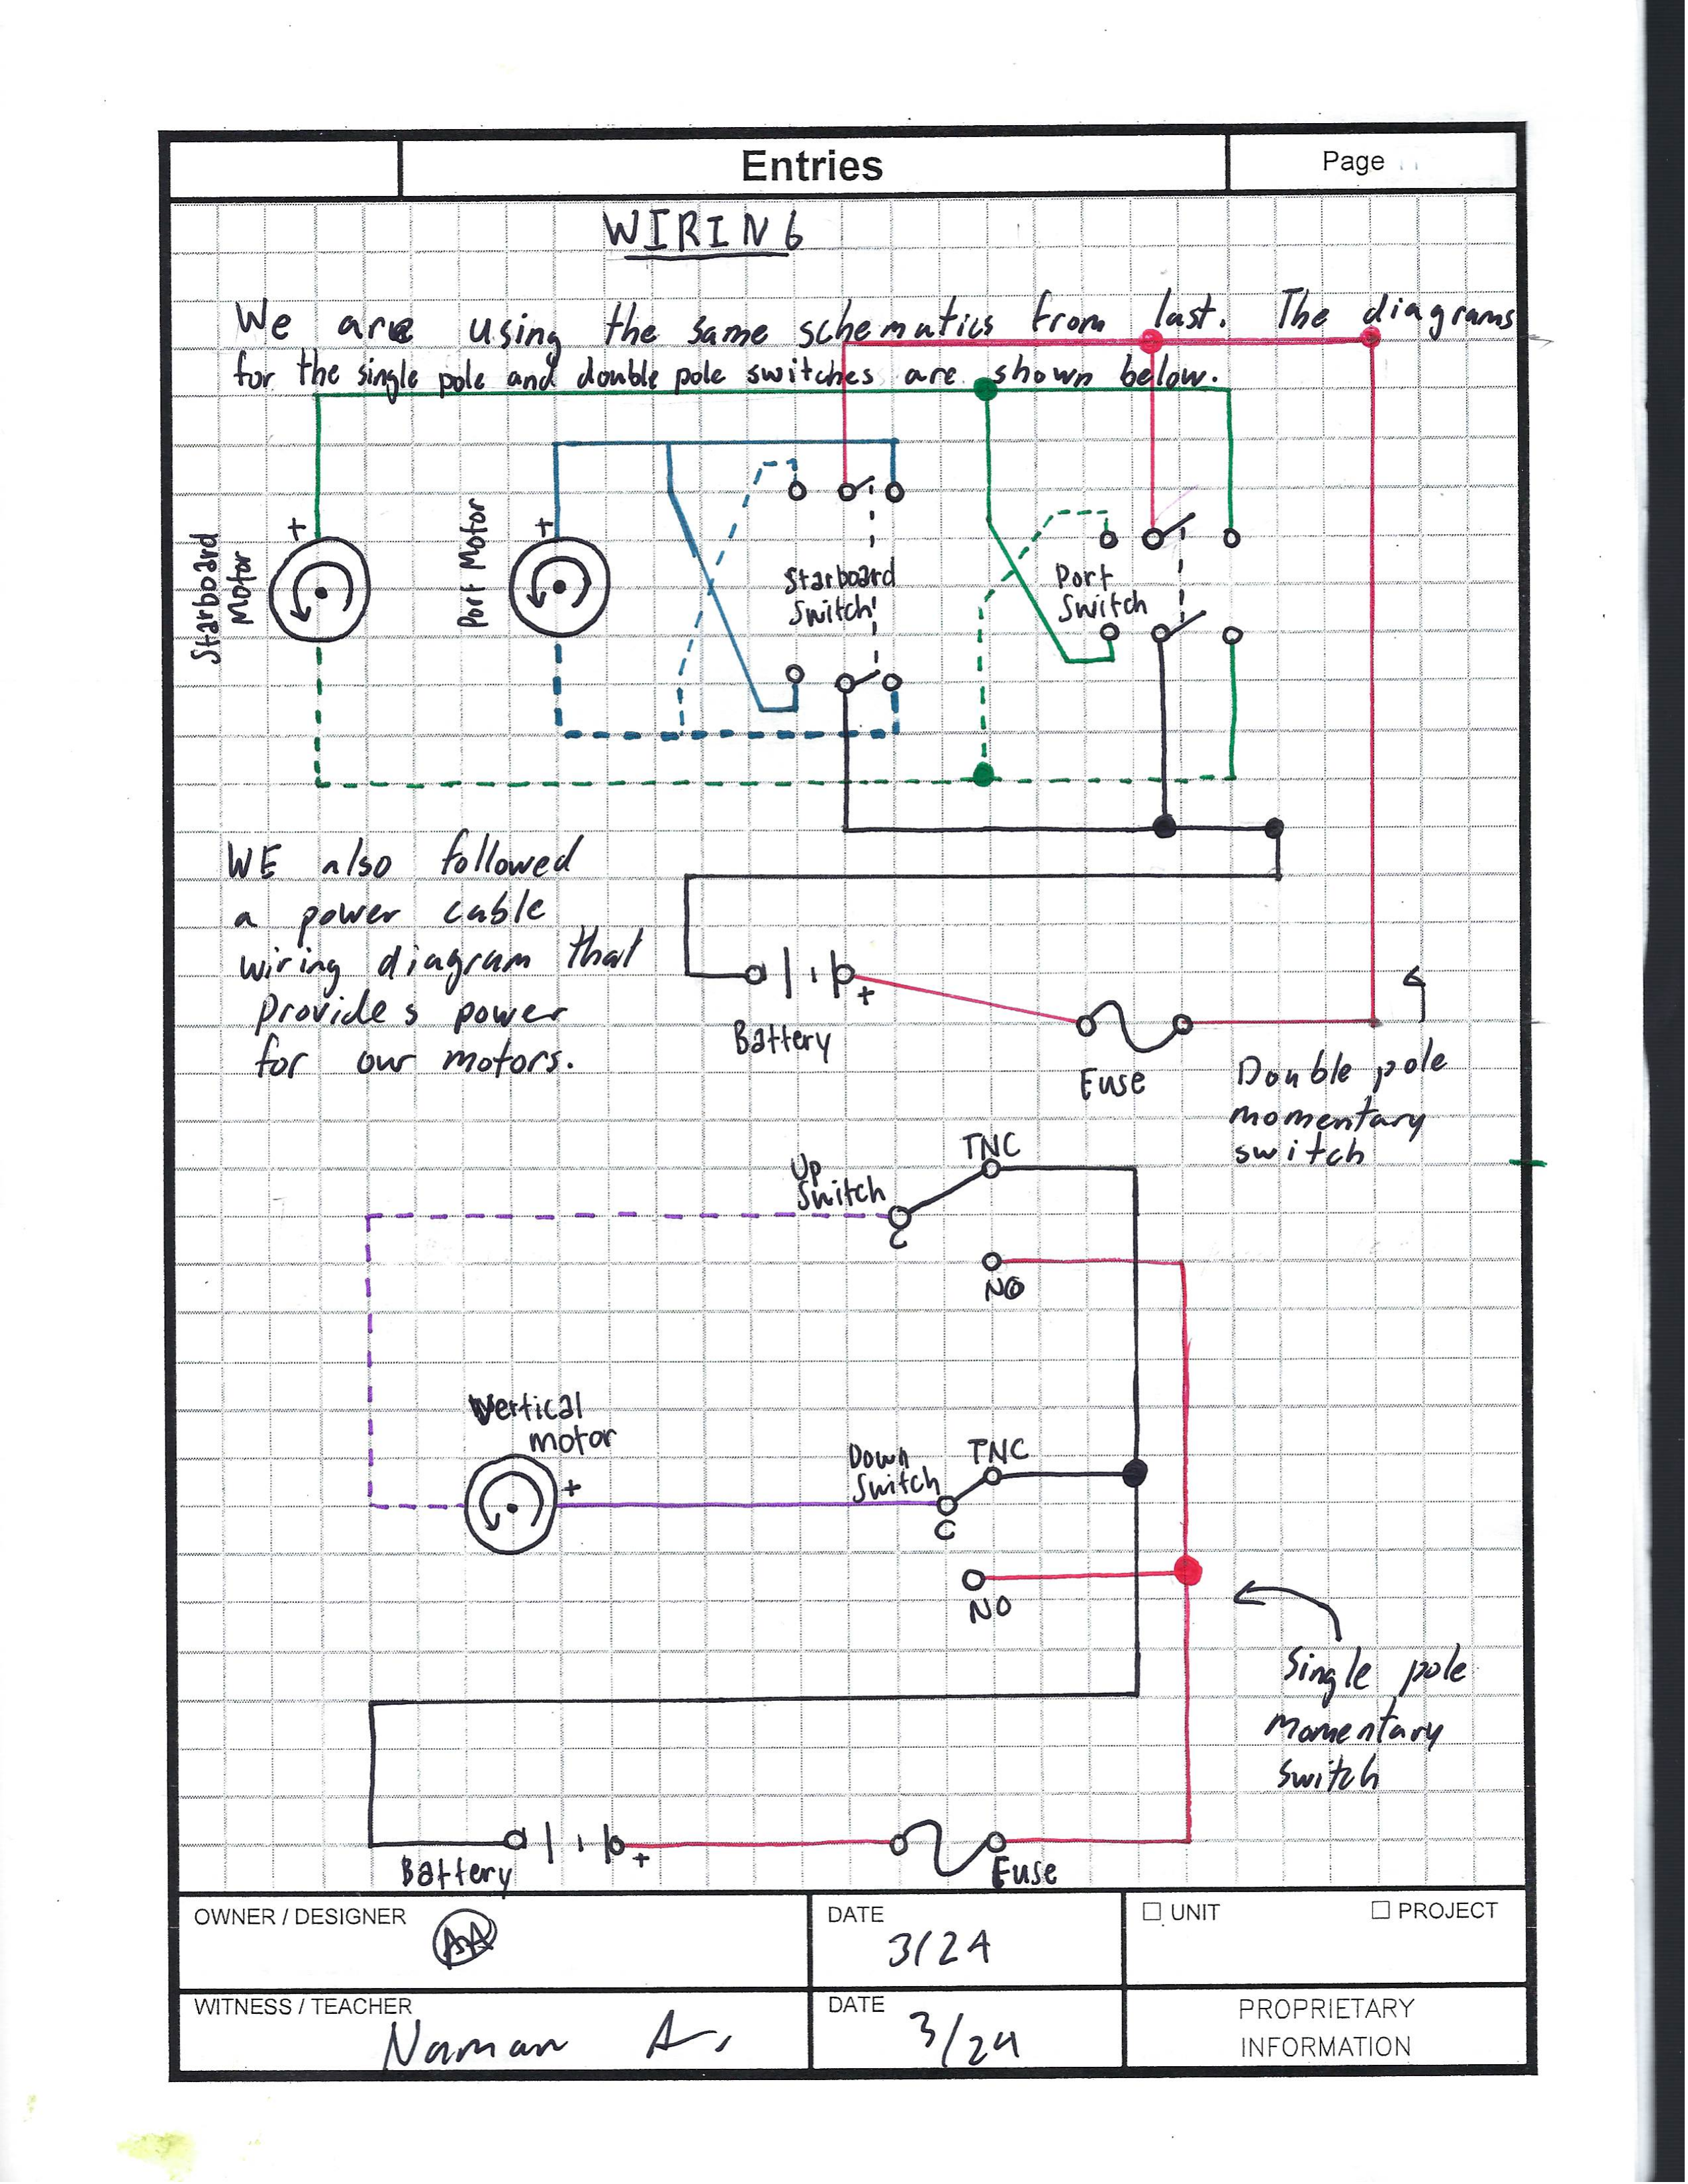 Entries
Page
WIRING
We are using the same schematics from last. The diagrams
for the single pole and double pole switches are shown below.
Starboard
Motor
+
Port Motor
+
Starboard
Switch
Port
Switch
WE also followed
a power cable
wiring diagram that
provides power
for our motors.
+
Battery
Fuse
Double pole
momentary
switch
Up
Switch
TNC
C
NO
Vertical
motor
+
Down
Switch
TNC
C
NO
Single pole
Momentary
Switch
+
Battery
Fuse
OWNER / DESIGNER
AA
DATE
3/24
UNIT
PROJECT
WITNESS / TEACHER
Naman A.
DATE
3/24
PROPRIETARY
INFORMATION